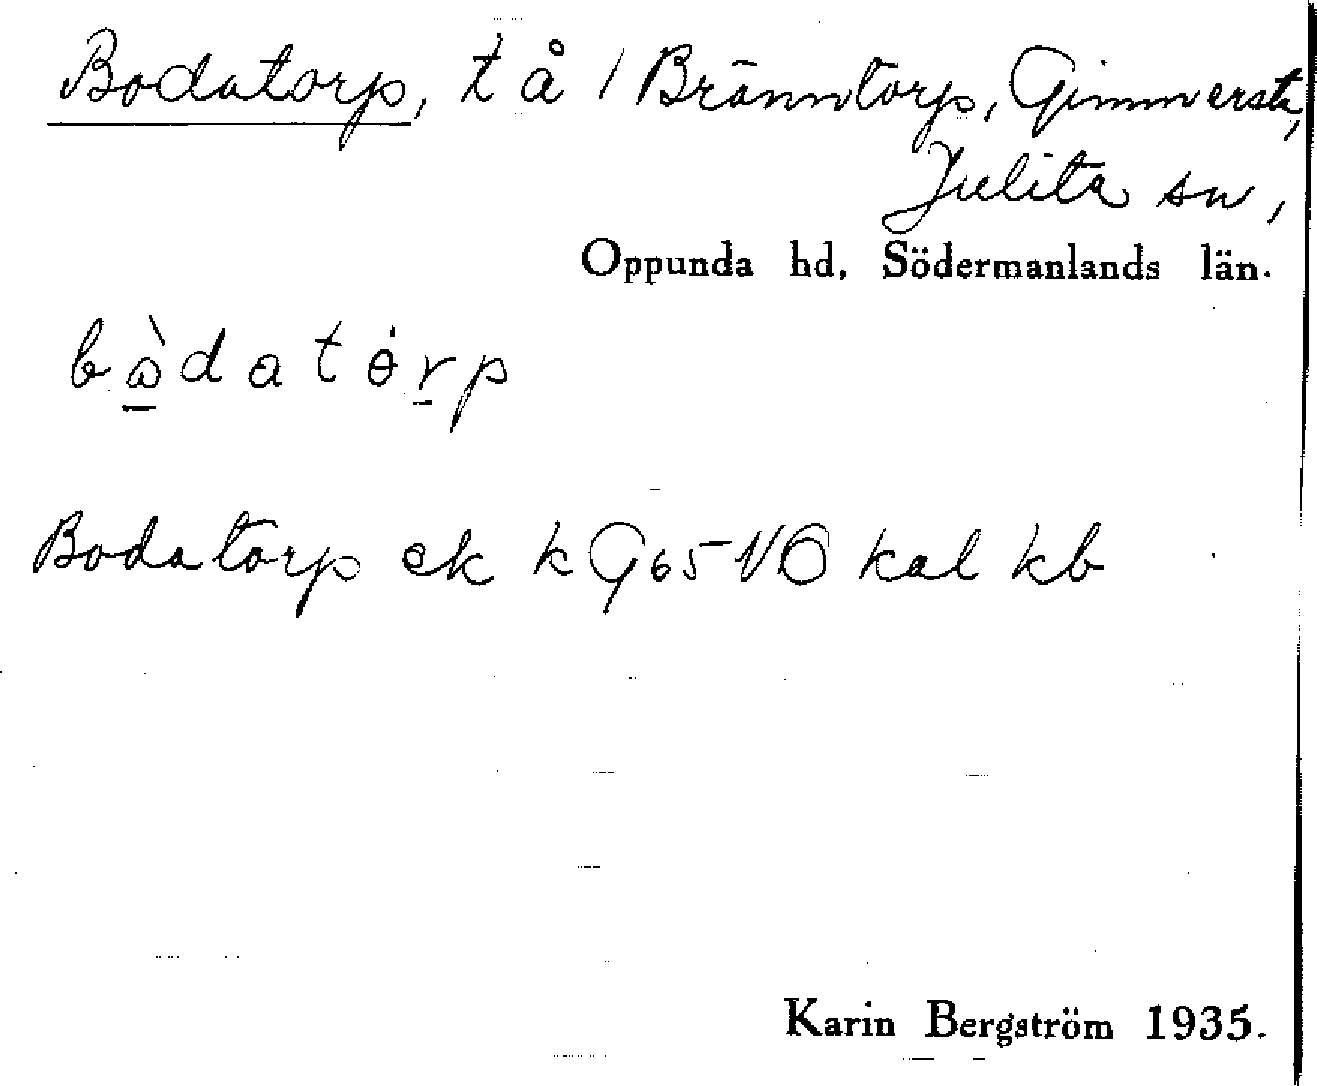 Bodatorp, t å 1 Bränntorp, Gimmersta,
Julita sn,
Oppunda hd, Södermanlands län.
bὼ̲datɵ́r̲p
Bodatorp ek k G65 VÖ kal kb
Karin Bergström 1935.